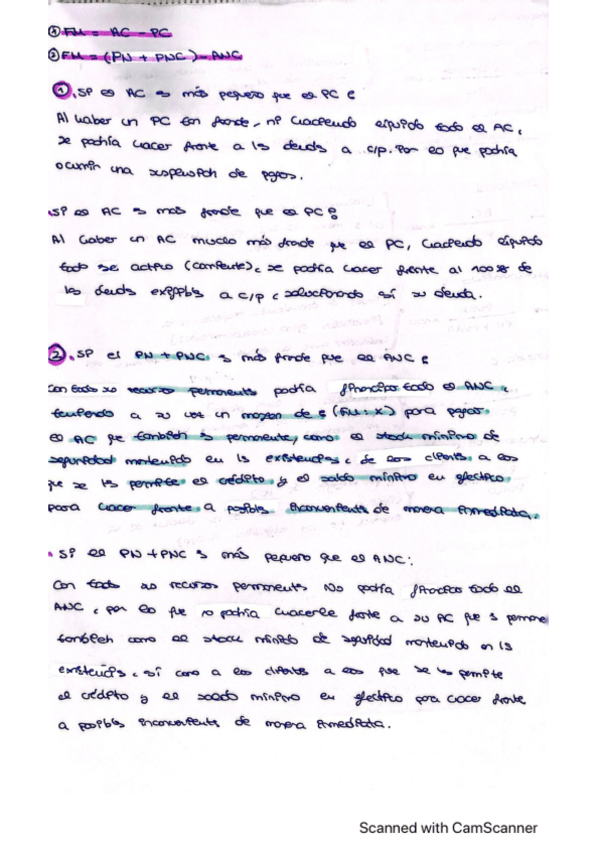 ① FM = AC - PC
② FM = (PN + PNC) - ANC
①. Si el AC es más pequeño que el PC:
Al haber un PC tan grande, ni haciendo líquido todo el AC,
se podría hacer frente a las deudas a c/p. Por lo que podría
ocurrir una suspensión de pagos.
. Si el AC es más grande que el PC:
Al haber un AC mucho más grande que el PC, haciendo líquido
todo su activo (corriente), se podría hacer frente al 100% de
las deudas exigibles a c/p, solucionando así su deuda.
②. Si el PN + PNC, es más grande que el ANC:
Con todo su recurso permanente podría financiar todo el ANC,
teniendo a su vez un margen de $ (FM: X) para pagar
el AC que también es permanente, como el stock mínimo de
seguridad mantenido en las existencias, de los clientes a los
que se les permite el crédito y el saldo mínimo en efectivo
para hacer frente a posibles inconvenientes de manera inmediata.
. Si el PN + PNC es más pequeño que el ANC:
Con todos sus recursos permanentes no podría financiar todo el
ANC, por lo que no podría hacerle frente a su AC que es permane
también como el stock mínimo de seguridad mantenido en las
existencias, así como a los clientes a los que se les permite
el crédito y el saldo mínimo en efectivo para hacer frente
a posibles inconvenientes de manera inmediata.
Scanned with CamScanner